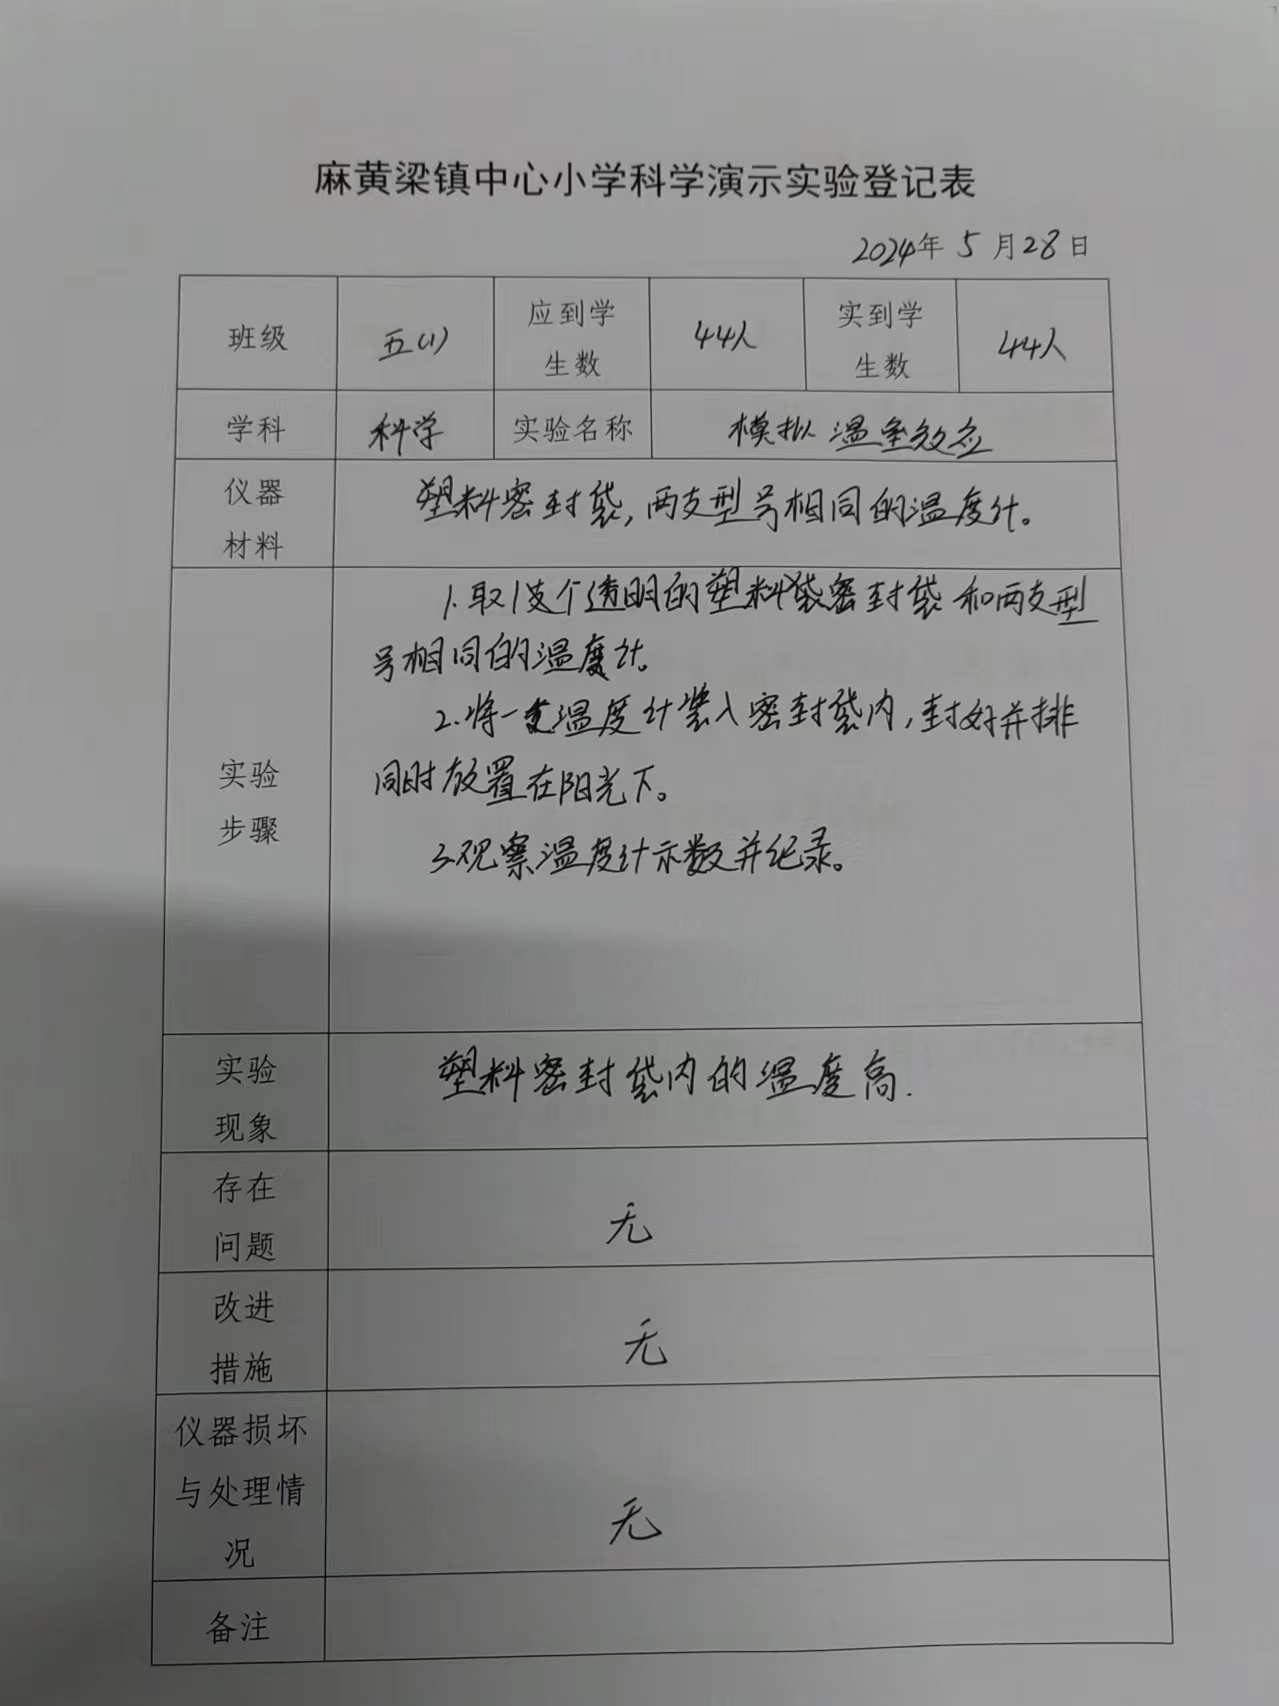 麻黄梁镇中心小学科学演示实验登记表
2024年 5 月28日
班级 五(1) 应到学生数 44人 实到学生数 44人
学科 科学 实验名称 模拟温室效应
仪器材料 塑料密封袋,两支型号相同的温度计。
实验步骤
1.取1个透明的塑料密封袋和两支型
号相同的温度计。
2.将一支温度计装入密封袋内,封好并排
同时放置在阳光下。
3.观察温度计示数并纪录。
实验现象 塑料密封袋内的温度高.
存在问题 无
改进措施 无
仪器损坏与处理情况 无
备注